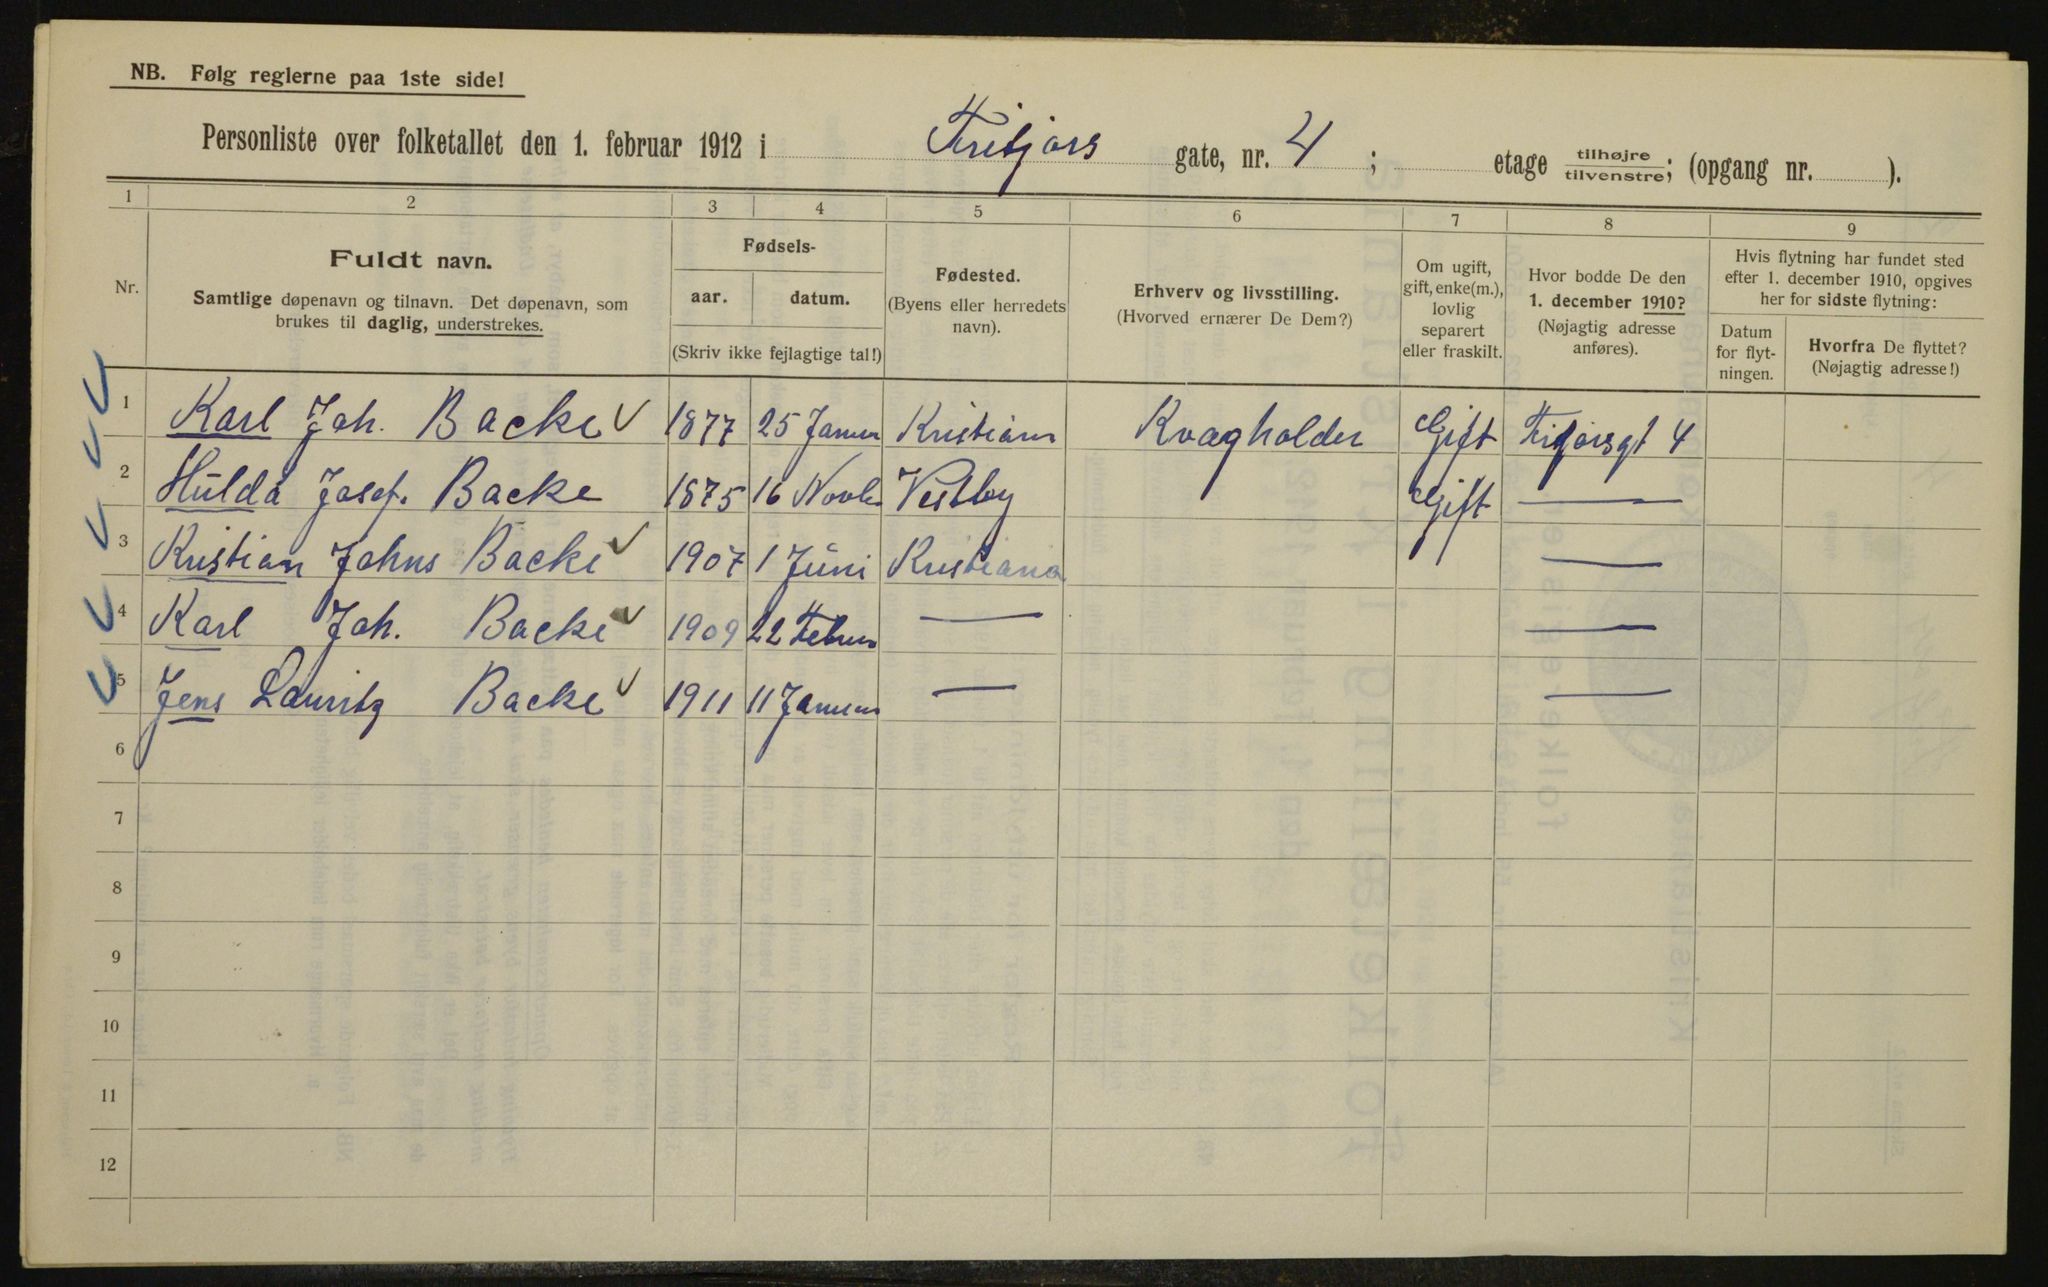 NB. Følg reglerne paa 1ste side!
Personliste over folketallet den 1. februar 1912 i Fritjors gate, nr. 4 ; etage tilhøjre tilvenstre; (opgang nr. ).
1 2 3 4 5 6 7 8 9
Nr.
Fuldt navn.
Samtlige døpenavn og tilnavn. Det døpenavn, som
brukes til daglig, understrekes.
Fødsels-
aar. datum.
(Skriv ikke fejlagtige tal!)
Fødested.
(Byens eller herredets
navn).
Erhverv og livsstilling.
(Hvorved ernærer De Dem?)
Om ugift,
gift, enke(m.),
lovlig
separert
eller fraskilt.
Hvor bodde De den
1. december 1910?
(Nøjagtig adresse
anføres).
Hvis flytning har fundet sted
efter 1. december 1910, opgives
her for sidste flytning:
Datum
for flyt-
ningen.
Hvorfra De flyttet?
(Nøjagtig adresse!)
1 Karl Joh. Backe 1877 25 Januar Kristian Kvægholder Gift 4
2 Hulda Josef. Backe 1875 16 Novb Vestby Gift —
3 Kristian Johns Backe 1907 1 Juni Kristiania —
4 Karl Joh. Backe 1909 22 Februar — —
5 Jens Lauritz Backe 1911 11 Januar — —
6
7
8
9
10
11
12